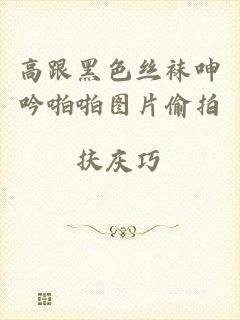 高跟黑色丝袜呻
吟啪啪图片偷拍
扶庆巧